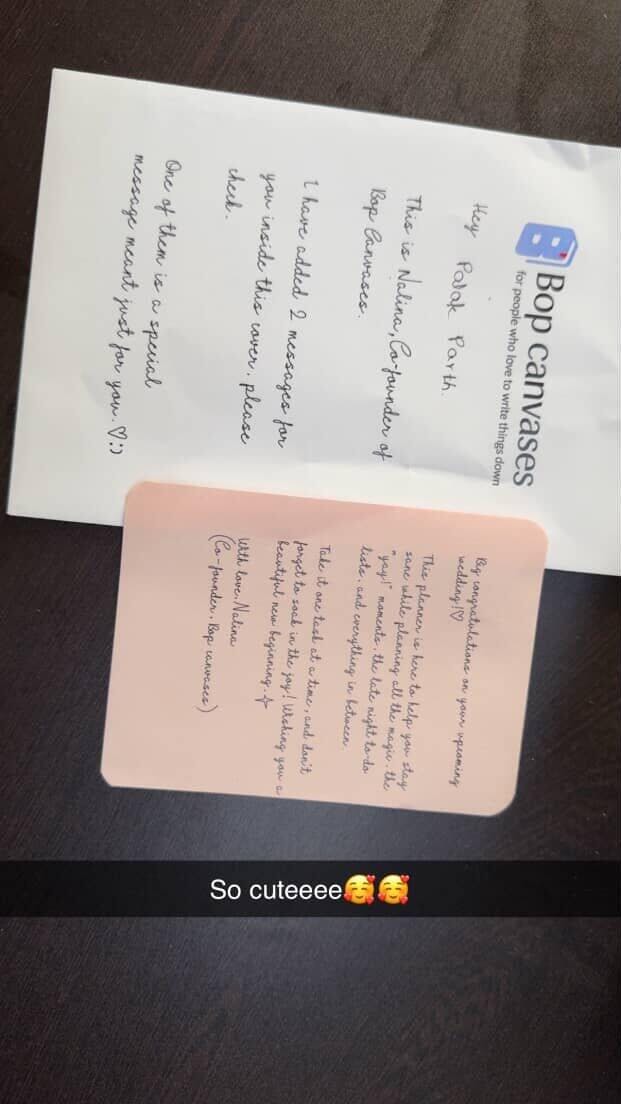 Bop canvases
for people who love to write things down
Hey Palak Parth.
This is Nalina, Co-founder of
Bop Canvases.
I have added 2 messages for
you inside this cover. please
check.
One of them is a special
message meant just for you. ♡:)
Big congratulations on your upcoming
wedding!♡
This planner is here to help you stay
sane while planning all the magic. the
"yay!" moments. the late night to-do
lists. and everything in between.
Take it one task at a time, and don't
forget to soak in the joy! Wishing you a
beautiful new beginning.
With love, Nalina
(Co-founder. Bop canvases)
So cuteeee🥰🥰